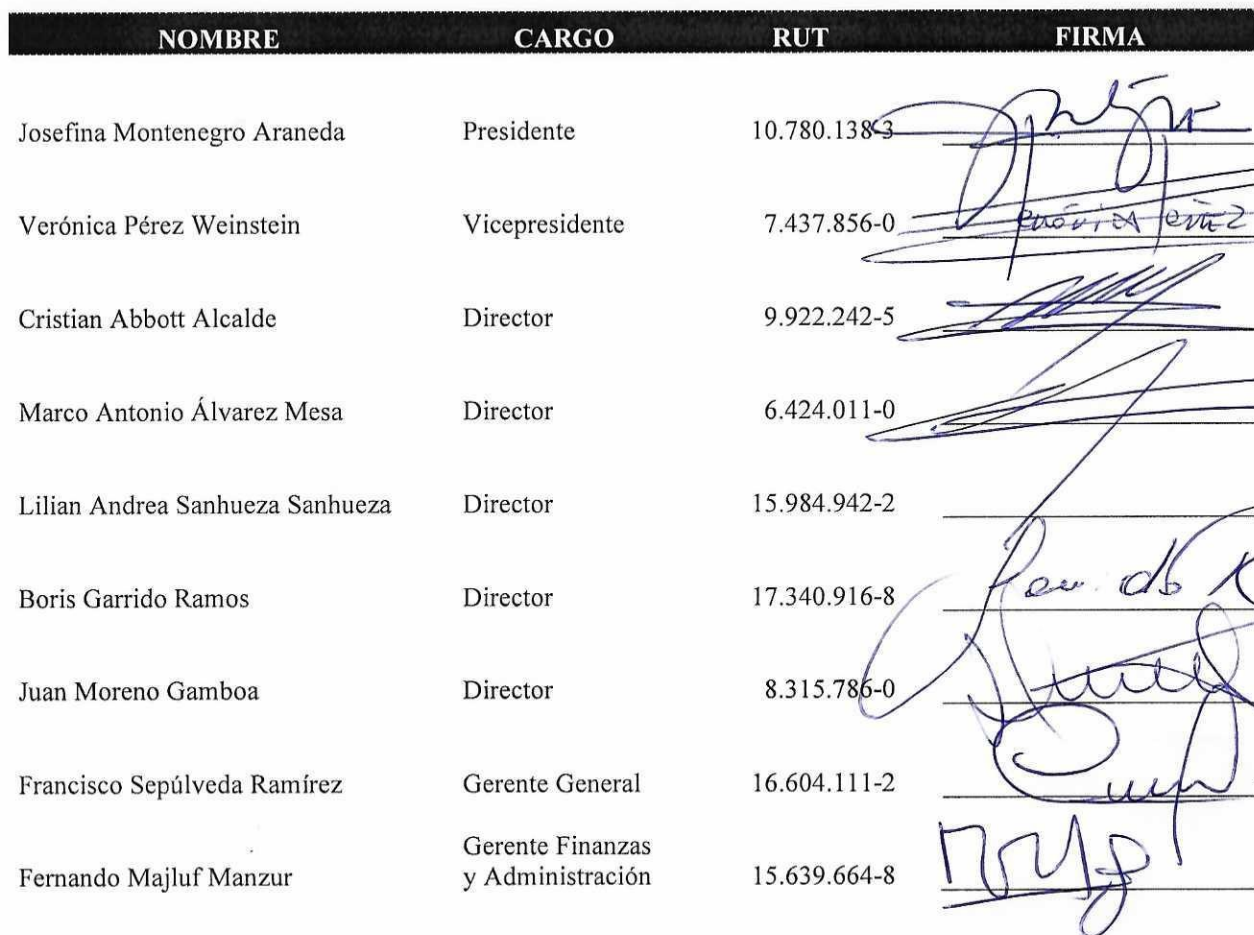 NOMBRE CARGO RUT FIRMA
Josefina Montenegro Araneda Presidente 10.780.138-3
Verónica Pérez Weinstein Vicepresidente 7.437.856-0
Cristian Abbott Alcalde Director 9.922.242-5
Marco Antonio Álvarez Mesa Director 6.424.011-0
Lilian Andrea Sanhueza Sanhueza Director 15.984.942-2
Boris Garrido Ramos Director 17.340.916-8
Juan Moreno Gamboa Director 8.315.786-0
Francisco Sepúlveda Ramírez Gerente General 16.604.111-2
Gerente Finanzas
Fernando Majluf Manzur y Administración 15.639.664-8